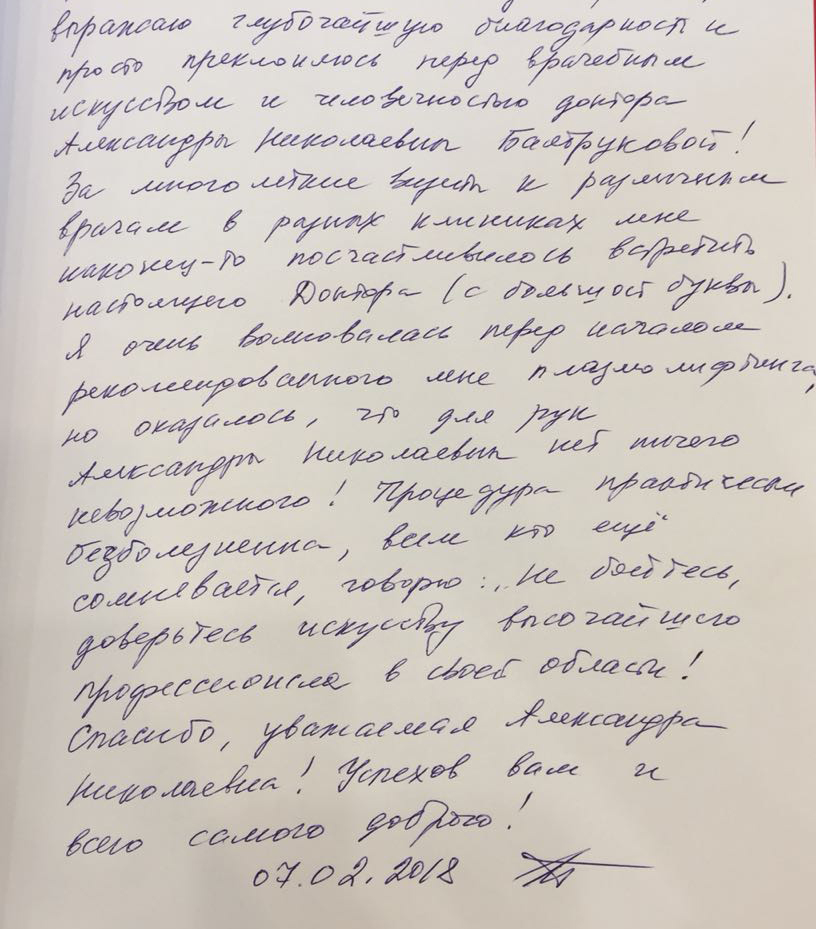 выражаю глубочайшую благодарность и
просто преклоняюсь перед врачебным
искусством и человечностью доктора
Александры Николаевны Балтруковой!
За многолетние визиты к различным
врачам в разных клиниках мне
наконец-то посчастливилось встретить
настоящего Доктора (с большой буквы).
Я очень волновалась перед началом
рекомендованного мне плазмолифтинга,
но оказалось, что для рук
Александры Николаевны нет ничего
невозможного! Процедура практически
безболезненна, всем кто ещё
сомневается, говорю: „Не бойтесь,
доверьтесь искусству высочайшего
профессионала в своей области!
Спасибо, уважаемая Александра
Николаевна! Успехов вам и
всего самого доброго!
07.02.2018